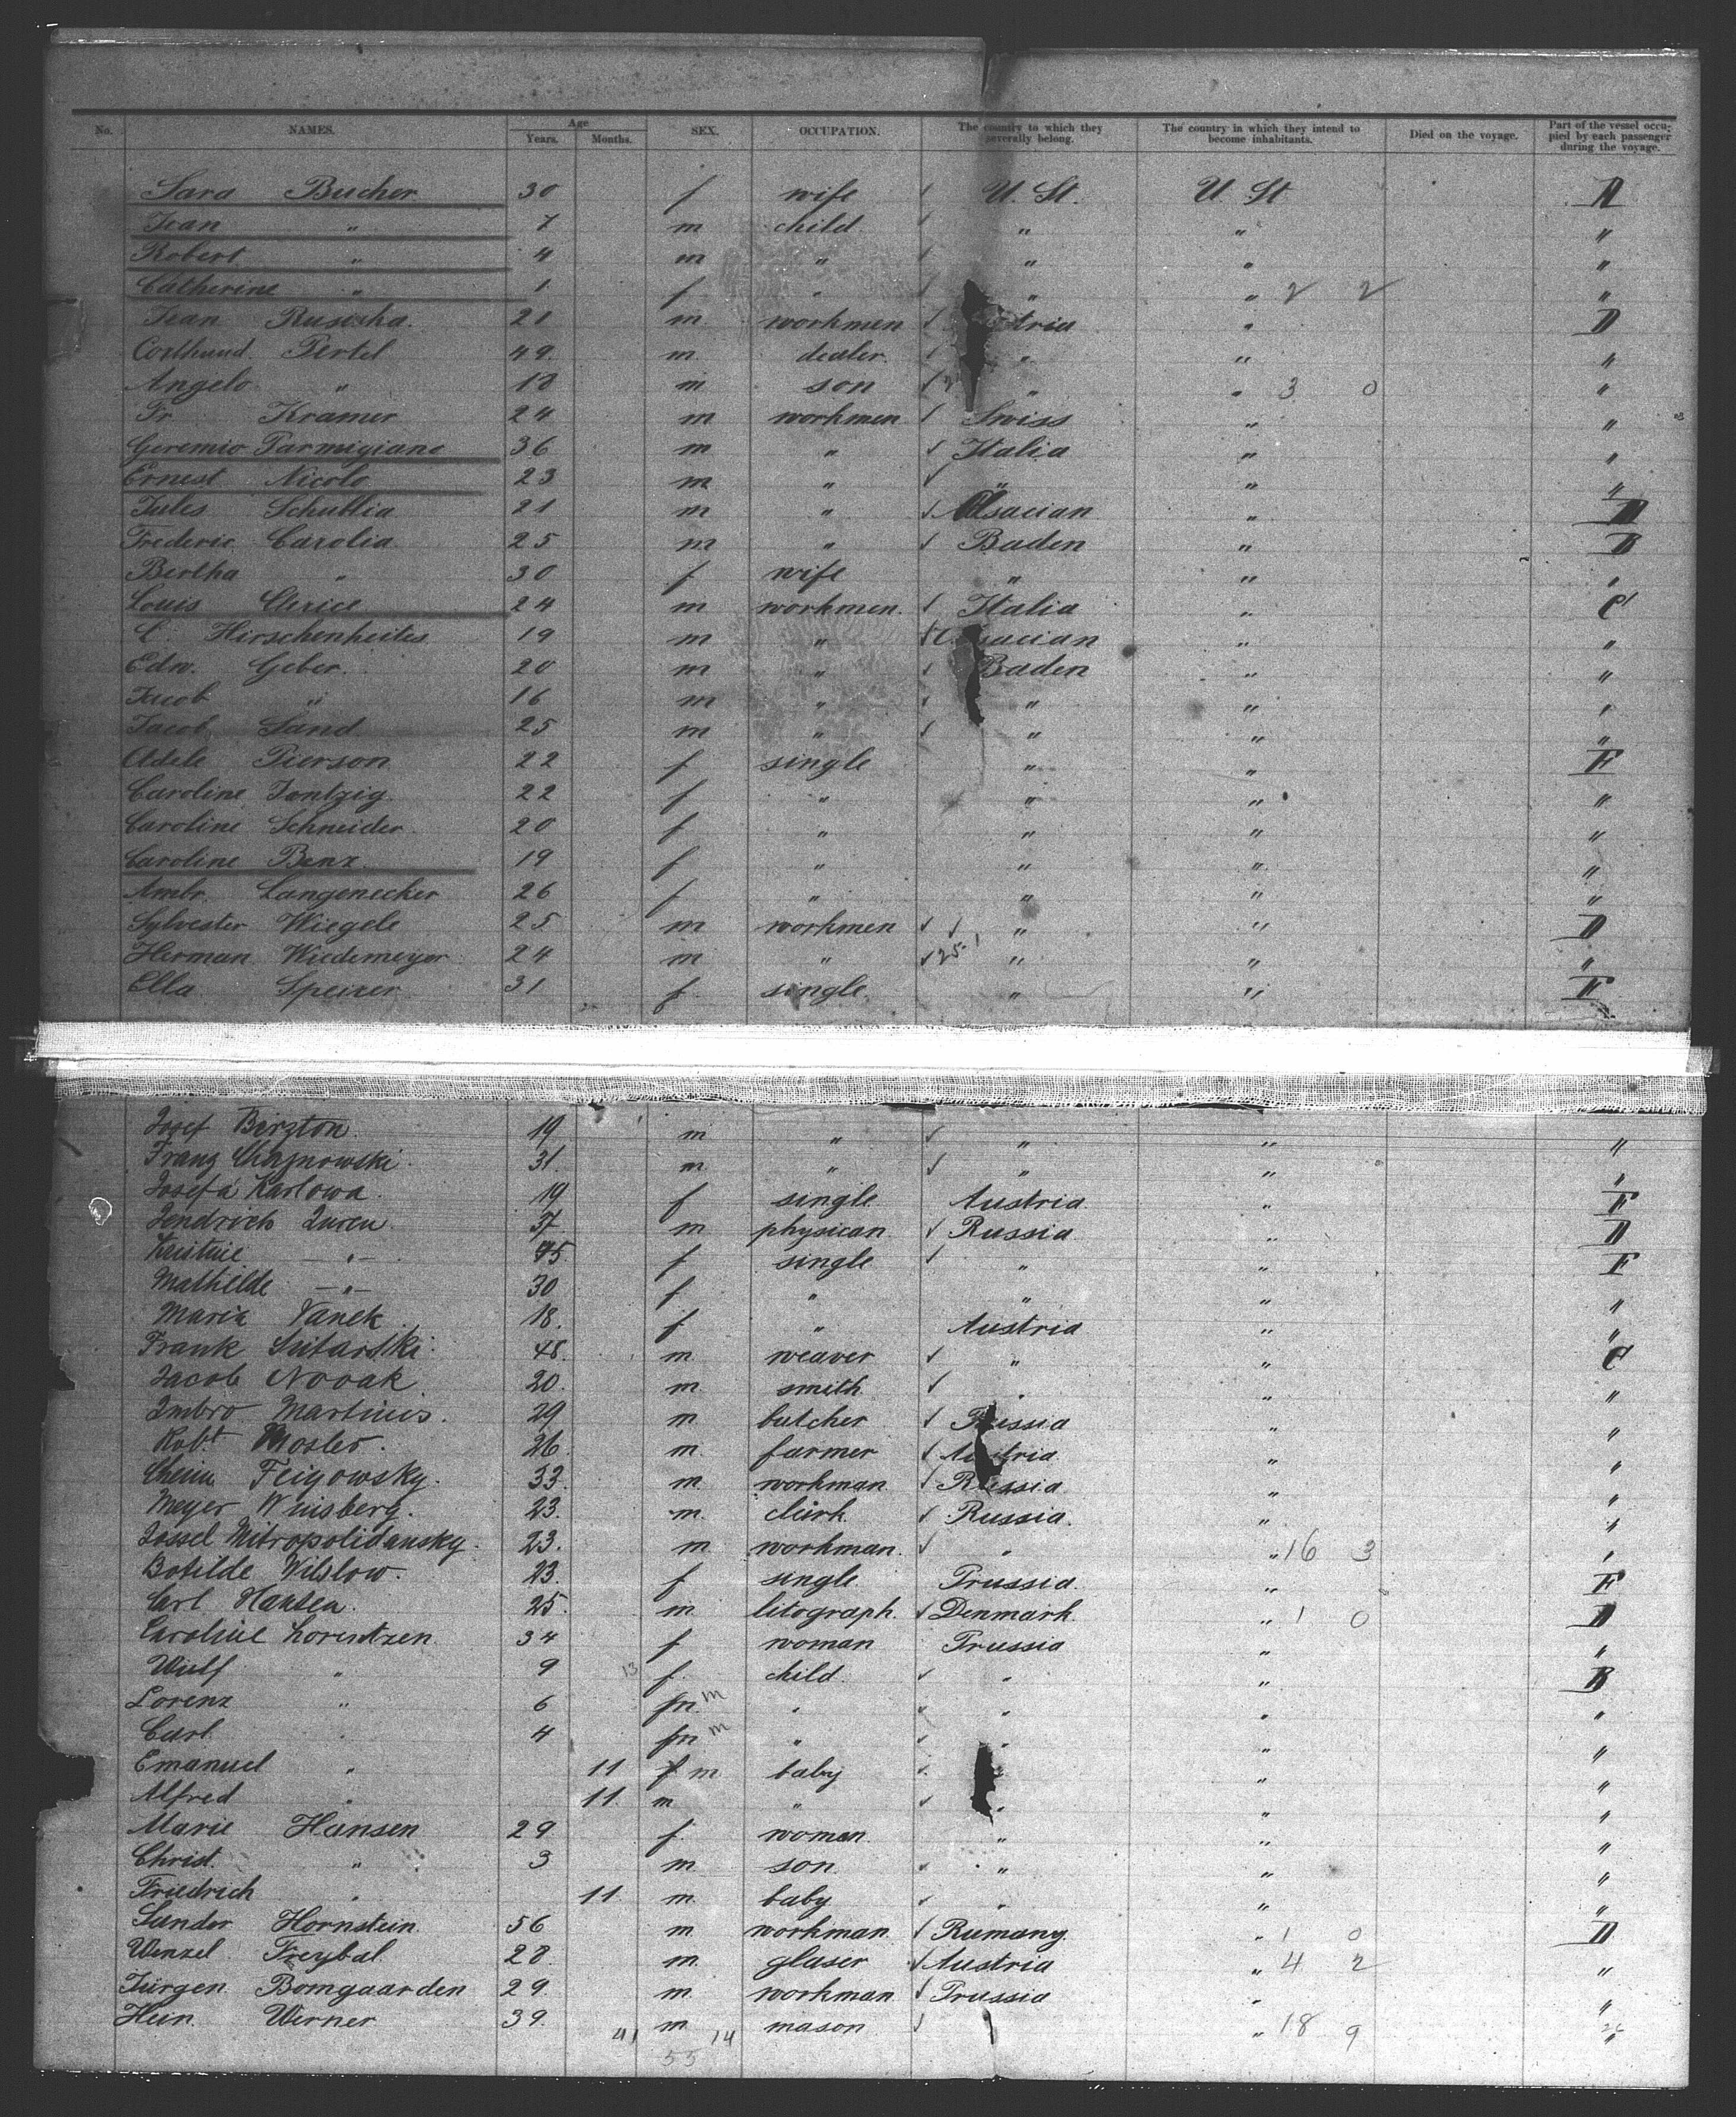 No. NAMES. Age Years. Months. SEX. OCCUPATION. The country to which they severally belong. The country in which they intend to become inhabitants. Died on the voyage. Part of the vessel occupied by each passenger during the voyage.
Sara Bucher 30 f wife U. St. U St
Jean " 7 m child " " "
Robert " 4 m " " " "
Catherine " 1 f " " " 2 2 "
Jean 20 m workmen " D
Pertel 49. m. dealer " " "
Angelo " 18 m son " " 3 0 "
Fr Kramer 24 m workmen Swiss " "
Geremio Parmigiano 36 m " Italia " "
Ernest Nicolo 23 m " " " "
Jules 21 m " Alsacian "
Frederic Carolia 25 m " Baden "
Bertha " 30 f wife " " "
Louis Clerici 24 m workmen. Italia " C
C. Hirschenheites 19 m " " "
Edw. Geber 20 m " Baden " "
Jacob " 16 m " " " "
Jacob Sand 25 m " " " "
Adele Pierson 22 f single " " F
Caroline Jantzig. 22 f " " " "
Caroline Schneider. 20 f " " " "
Caroline Benz 19 f " " " "
Ambr. Langenecker 26 f " " " "
Sylvester Wiegele 25 m workmen " " D
Herman Wiedemeyer 24 m " 25 1 " " "
Ella Speizer 31 f single " " F
Josef Birzton 19 m " " " "
Franz 31. m " " " "
Josefa Karlowa. 19 f single Austria " F
Jendrich 37 m physican Russia " D
45 f single " " F
Mathilde — " — 30 f " " " "
Maria Vanek 18. f " Austria " "
Frank 48. m. weaver " " C
Jacob Novak 20. m. smith " " "
Imbro Martinis. 29 m butcher " "
Robt. Mosler. 26. m. farmer Austria " "
Feigowsky. 33. m. workman Russia " "
Meyer 23. m. clerk Russia. " "
Jossel Mitropolidansky. 23. m workman. " " 16 3 "
Botilde Wilslow. 23. f single Prussia. " F
Carl Hansen. 25. m. litograph. Denmark " 1 0 D
Caroline Lorentzen 34 f woman Prussia " "
Wulf " 9 13 f. child. " " B
Lorenz " 6 m " " " "
Carl. " 4 m " " " "
Emanuel " 11 m. baby " "
Alfred " 11. m " " " "
Marie Hansen 29 f. women. " " "
Christ. " 3 m. son. " " "
Friedrich " 11. m. baby " " "
Sander Hornstein. 56 m workman. Rumany. " 1 0 D
Wenzel Freybal. 28. m. glaser Austria " 4 2 "
Jürgen Bomgaarden 29. m. workman Prussia " "
Hein. Werner 39. m mason " 18 9 "
41 14
55